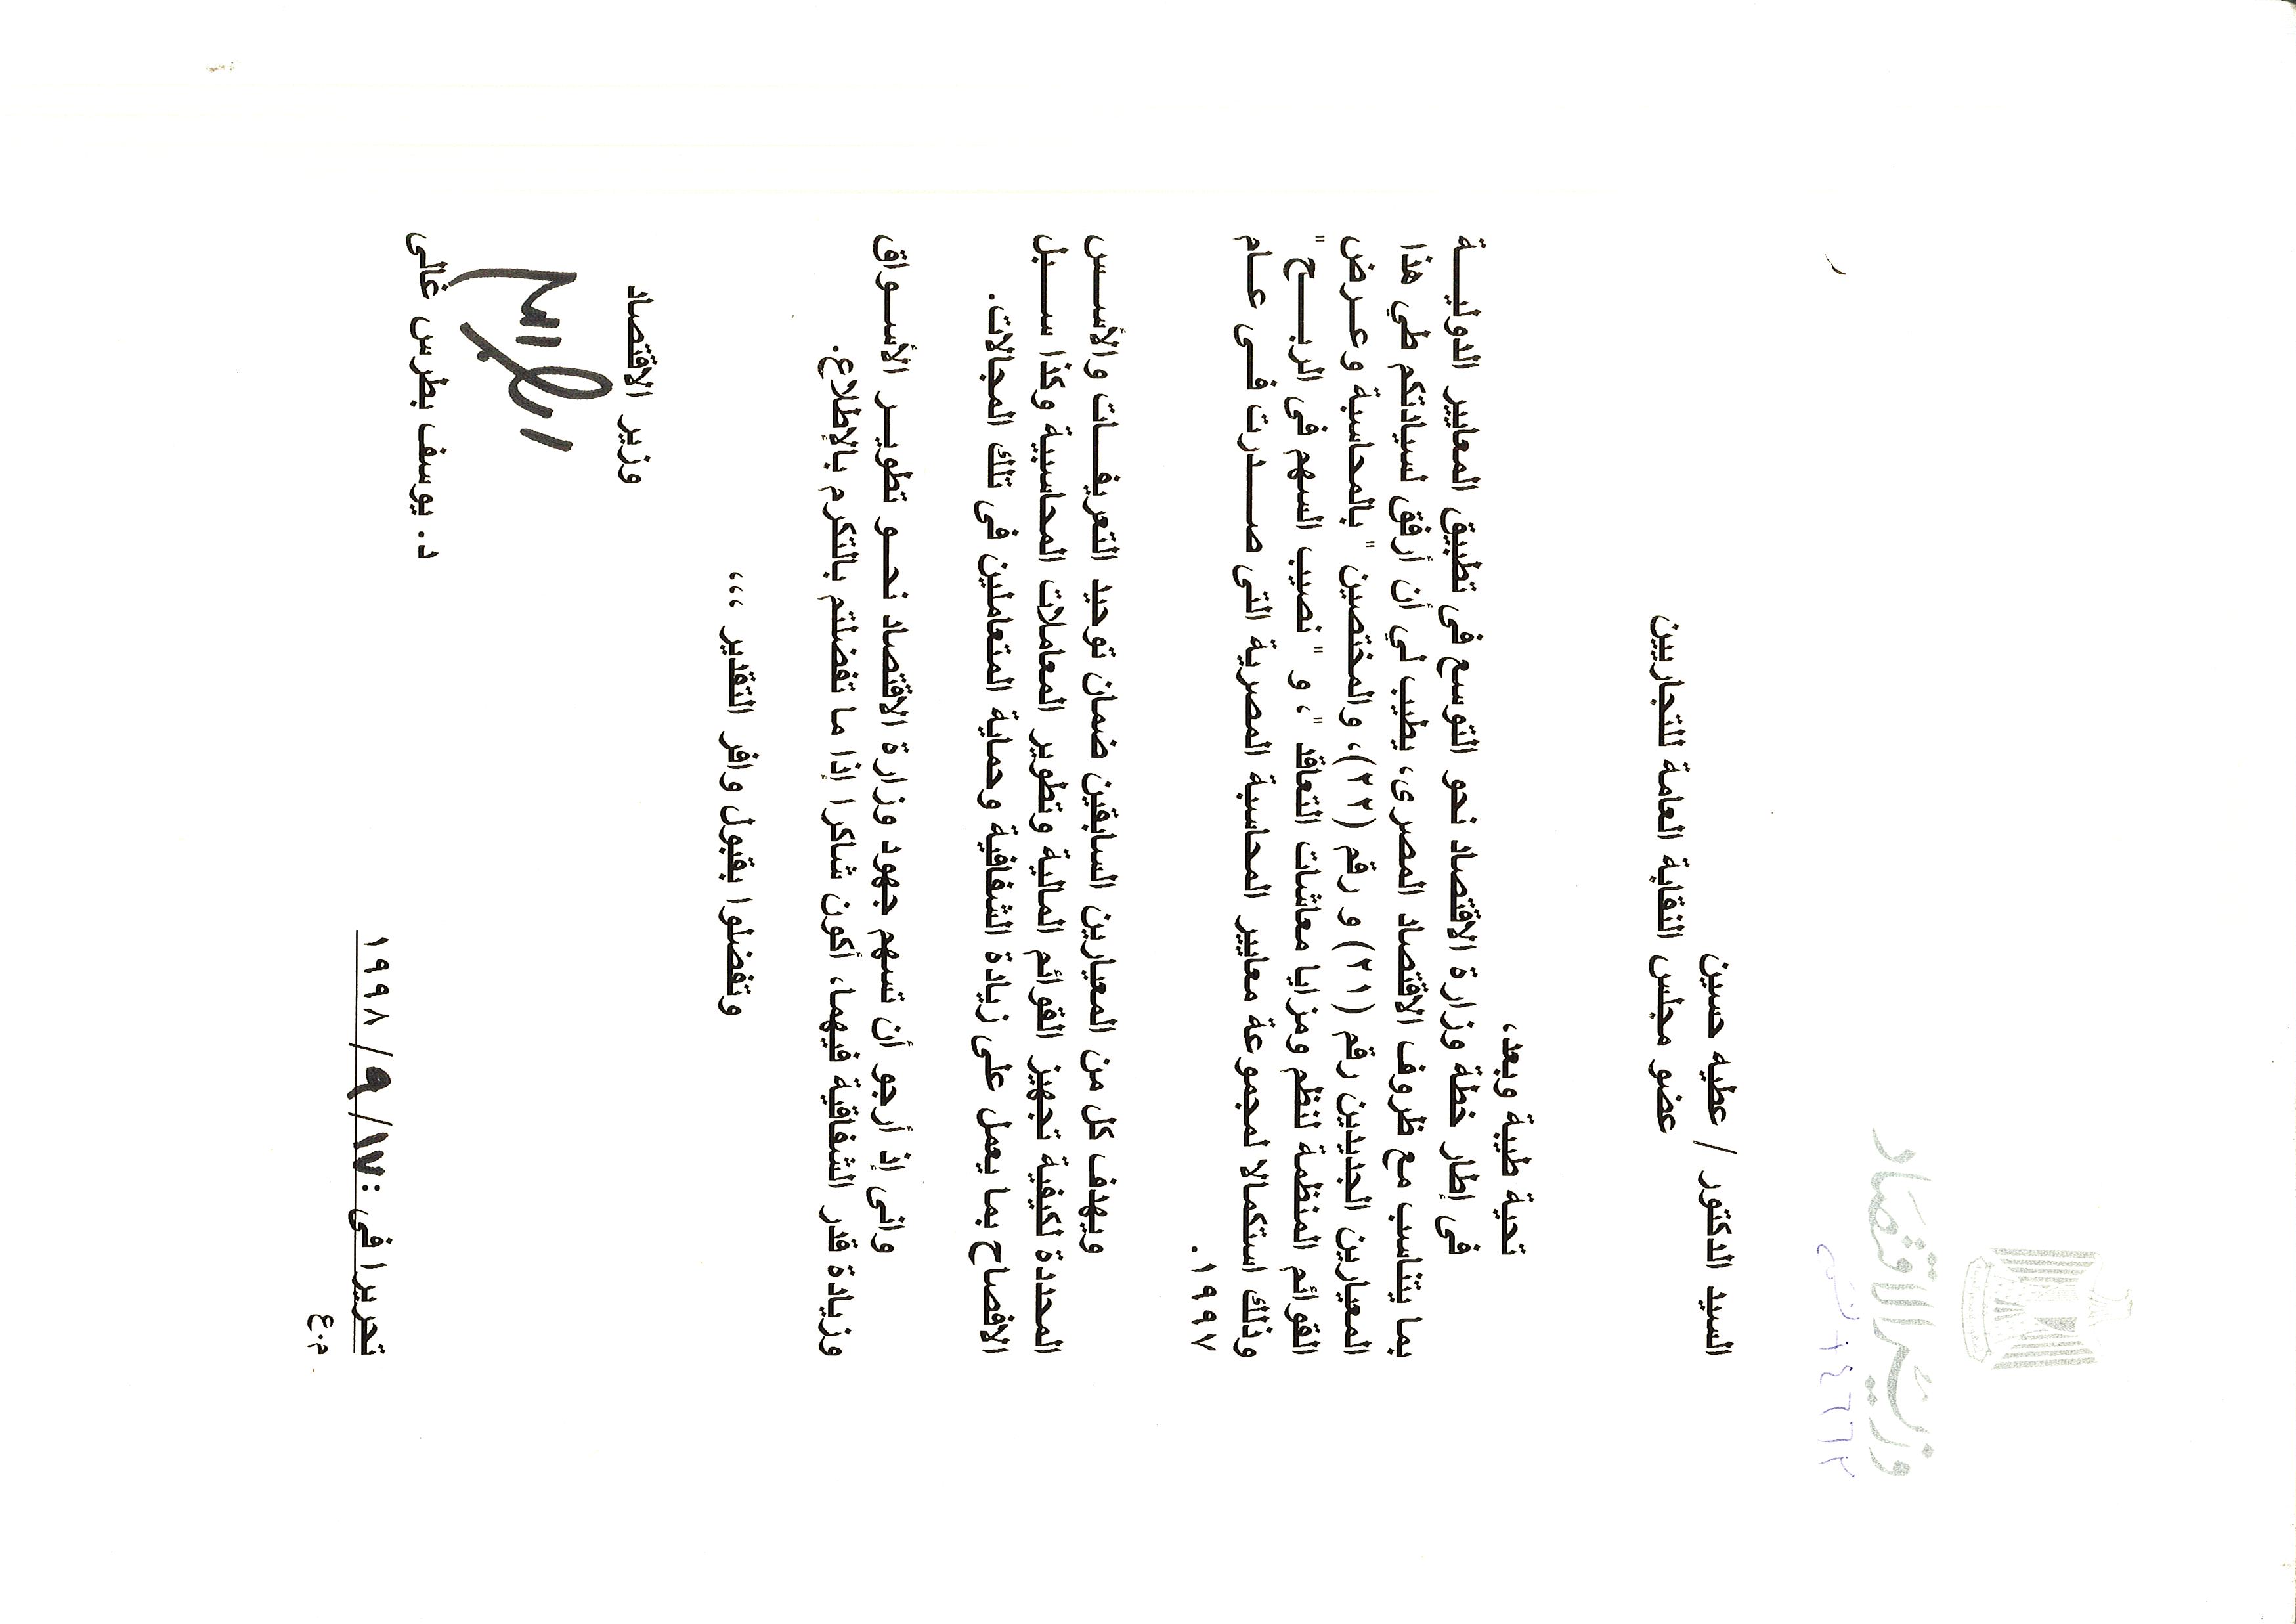 وزير الاقتصاد
السيد الدكتور / عطيه حسين
عضو مجلس النقابة العامة للتجاريين
تحية طيبة وبعد،
فى إطار خطة وزارة الاقتصاد نحو التوسع فى تطبيق المعايير الدوليـــة
بما يتناسب مع ظروف الاقتصاد المصرى، يطيب لي أن أرفق لسيادتكم طي هذا
المعيارين الجديدين رقم (٢١) و رقم (٢٢)، والمختصين " بالمحاسبة وعـرض
القوائم المنظمة لنظم ومزايا معاشات التعاقد "، و " نصيب السهم فى الربـــح "
وذلك استكمالا لمجموعة معايير المحاسبة المصرية التى صـــدرت فـــى عـــام
١٩٩٧ .
ويهدف كل من المعيارين السابقين ضمان توحيد التعريفـــات والأســـس
المحددة لكيفية تجهيز القوائم المالية وتطوير المعاملات المحاسبية وكذا ســـبل
الافصاح بما يعمل على زيادة الشفافية وحماية المتعاملين فى تلك المجالات.
وانى إذ أرجو أن تسهم جهود وزارة الاقتصاد نحـــو تطويـــر الأســـواق
وزيادة قدر الشفاقية فيهما، أكون شاكرا إذا ما تفضلتم بالتكرم بالإطلاع.
وتفضلوا بقبول وافر التقدير ،،،
وزير الاقتصاد
د. يوسف بطرس غالى
تحريرا فى :١٧/ ٩/ ١٩٩٨
م.ع